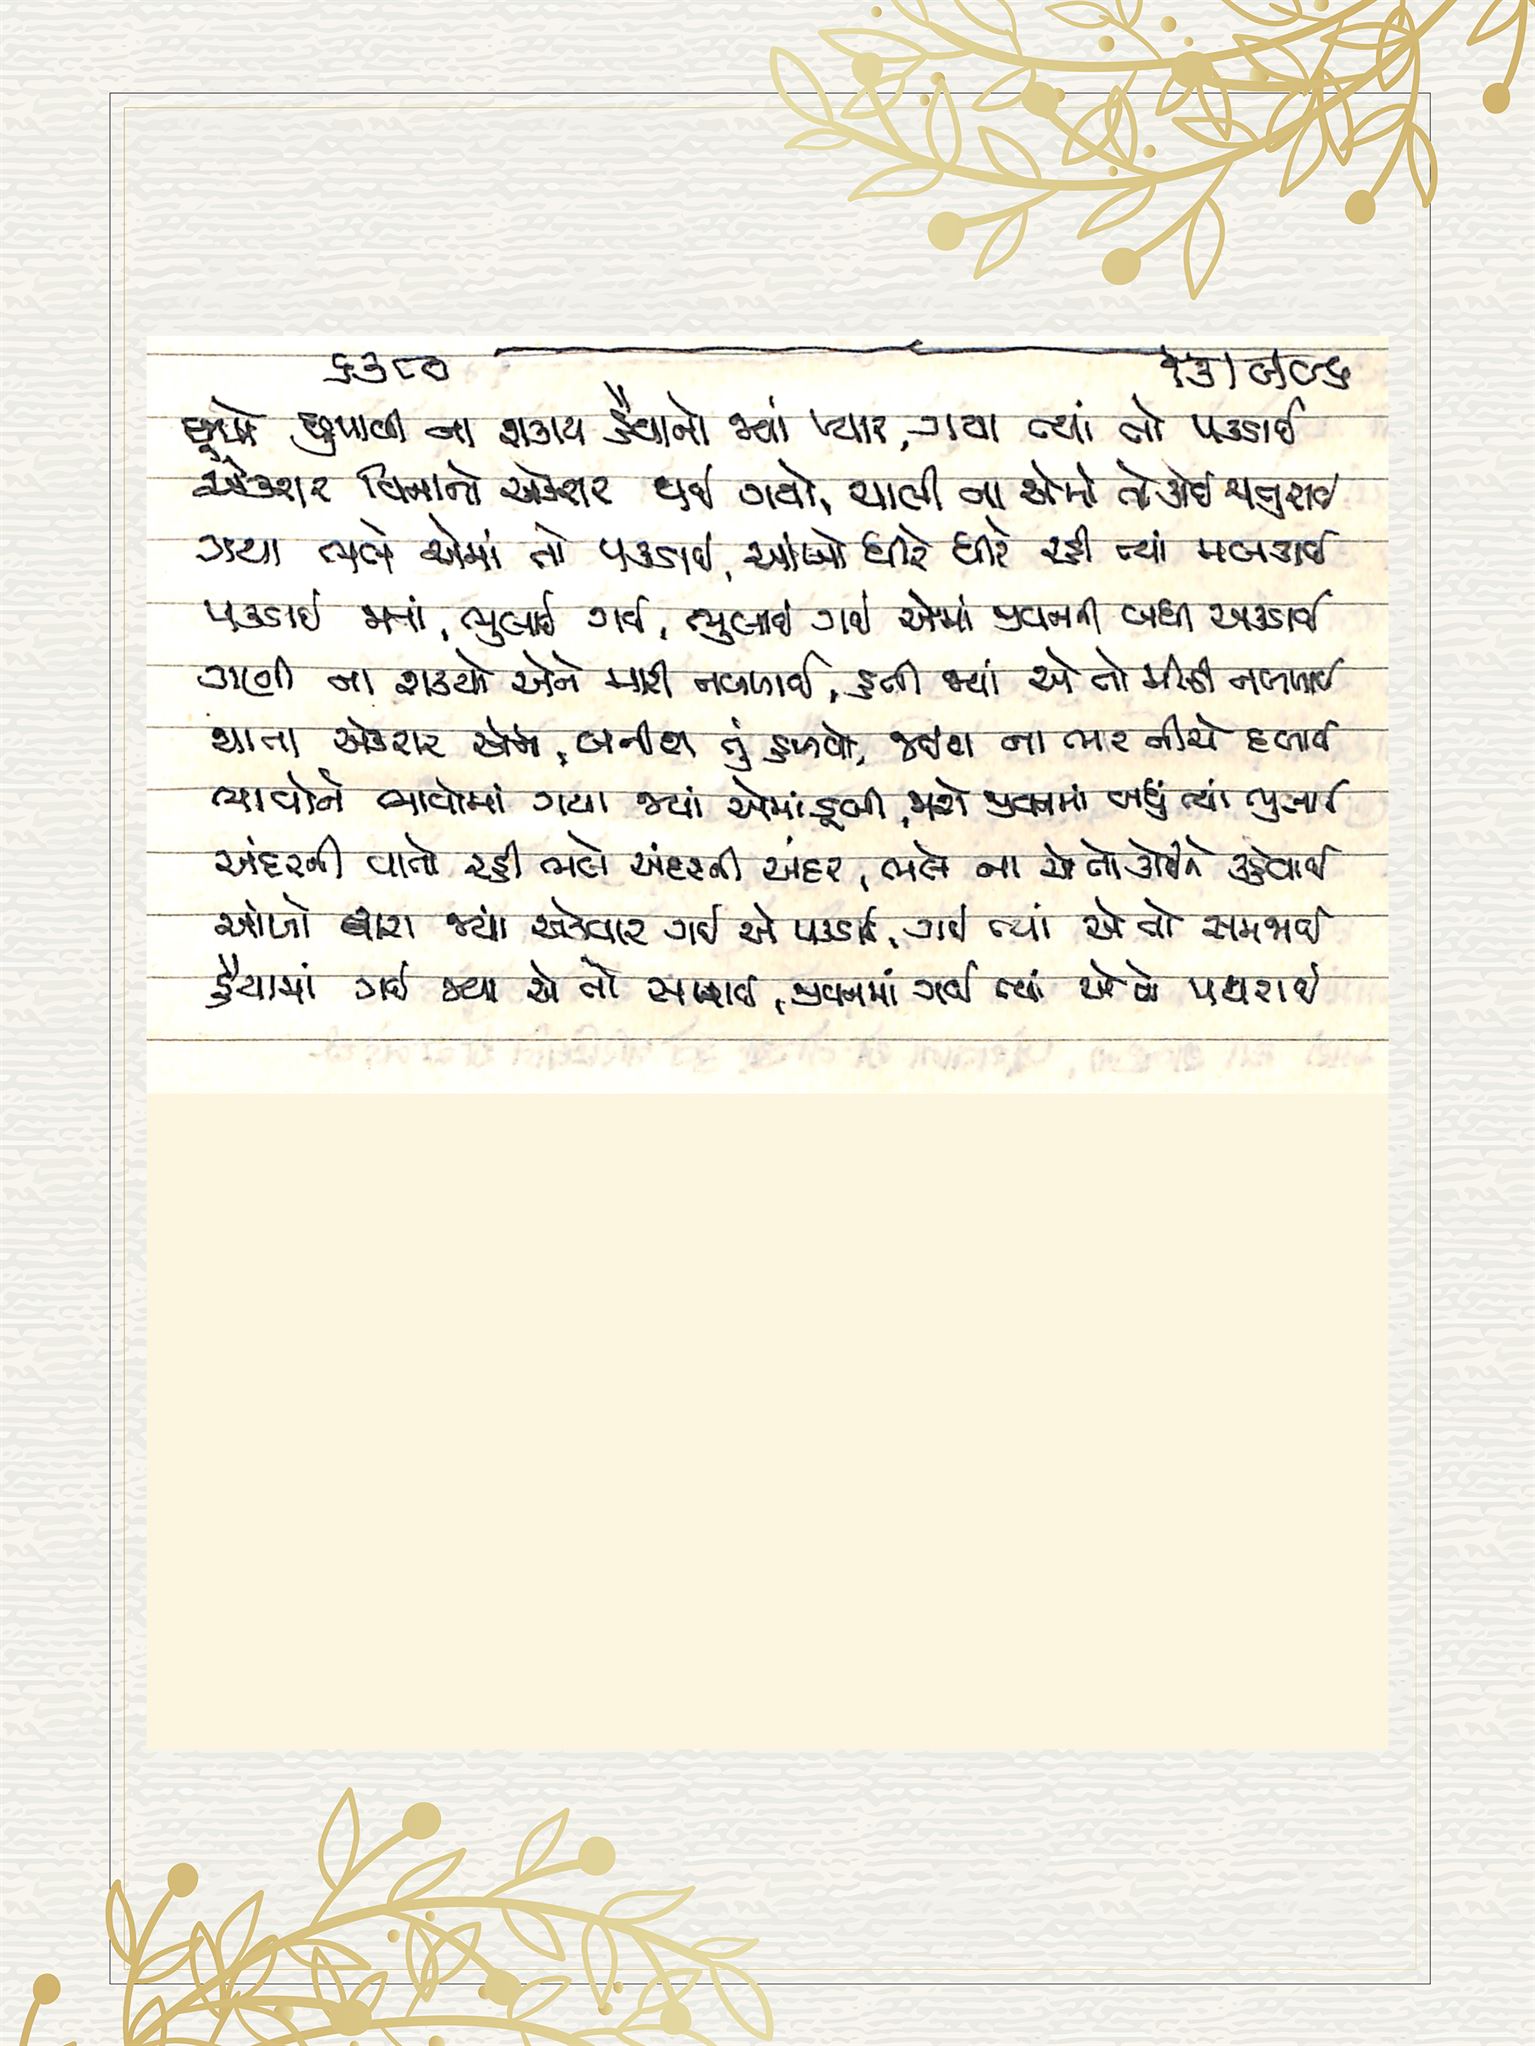 ૬૩૮૦ ૧૩૧
છુપાવી ના શકાય હૈયાનો જ્યાં પ્યાર, ગયા ત્યાં તો પકડાઈ
એકરાર વિનાનો એકરાર થઈ ગયો, ચાલી ના એમાં તો કોઈ ચતુરાઈ
ગયા ભલે એમાં તો પકડાઈ, આંખો ધીરે ધીરે રહી ત્યાં મલકાઈ
પકડાઈ જાતાં, ભુલાઈ ગઈ, ભુલાઈ ગઈ એમાં જીવનની બધી અકડાઈ
ગણી ના શક્યો એને મારી નબળાઈ, હતી જ્યાં એ તો મીઠી નબળાઈ
થાતા એકરાર એમ, બનીશ તું હળવો, જઈશ ના ભાર નીચે દબાઈ
ભાવોને ભાવોમાં ગયા જ્યાં એમાં ડૂબી, જાશે જીવનમાં બધું ત્યાં ભુલાઈ
અંદરની વાતો રહી ભલે અંદરની અંદર, ભલે ના એ તો કોઈને કહેવાઈ
આંખો દ્વારા જ્યાં એકવાર ગઈ એ પકડાઈ, ગઈ ત્યાં એ તો સમજાઈ
હૈયામાં ગઈ જ્યાં એ તો, જીવનમાં ગઈ ત્યાં એ પથરાઈ